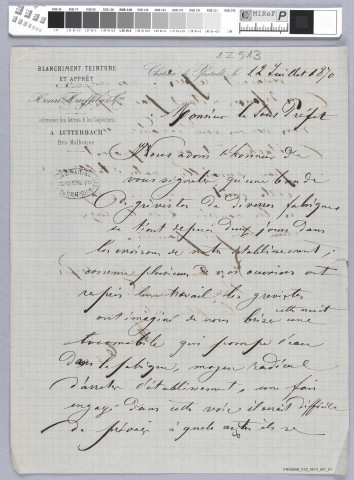 1Z513
BLANCHIMENT, TEINTURE
ET APPRÊT
Château de Pfastatt, le 12 Juillet 1870
Adresser les lettres & les dépêches
A LUTTERBACH
Près Mulhouse
Monsieur le Sous Préfet
Nous avons l'honneur de
vous signaler qu'une bande
de grévistes de diverses fabriques
se tient depuis deux jours dans
les environs de notre établissement ;
comme plusieurs de nos ouvriers ont
repris leur travail les grévistes
cette nuit
ont imaginé de nous briser une
locomobile qui pompe l'eau
dans la fabrique, moyen radical
d'arrêter l'établissement, une fois
engagé dans cette voie il serait difficile
de prévoir à quels actes ils se